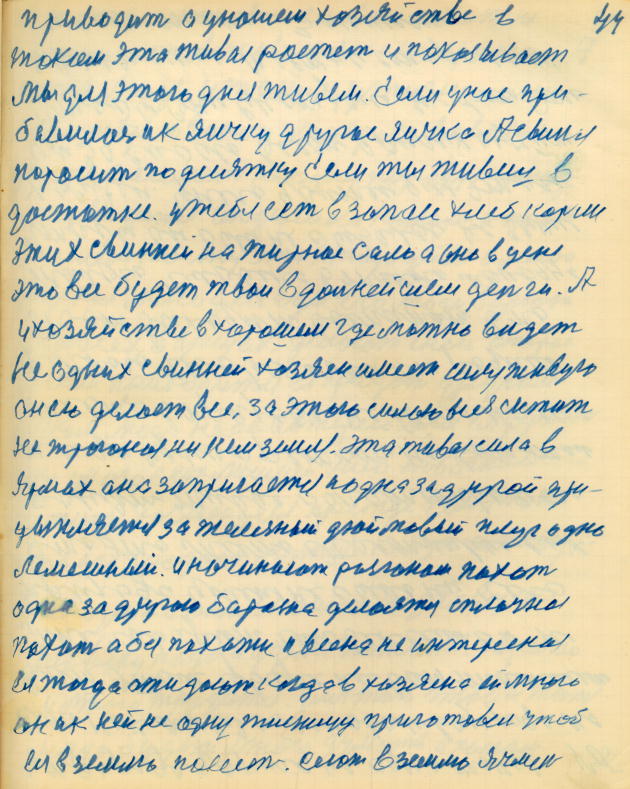 приводит а у нашем хозяйстве в 44
таком эта жива ростет и показывает
Мы для этого дня живем. Если у нас при-
бавилось ик яичку другое яичко А свиня
поросит по десятку Если ты живеш в
достатке. у тебя ест в запасе хлеб корми
этих свинней на жирное сало а оно в цене
это все будет твои в дальнейшем денги. А
и хозяйстве в хорошем где можно видет
не одних свинней хозяен имеет силу живую
он ею делает все, за этого силою все лежит
не тронона ни кем земля. эта живая сила в
ярмах она запрягается одна за другой при-
цепляется за железный дюймовый плуг одно
лемешный. и начинают разгоном пахат
одна за другою барозна делается сплошная
пахот а без пахоти и весна не интересна
Ея тогда ожидают когда в хозяена ей много
он ик ней не одну тисячу приготовил чтоб
Ея в землю посеят. сеют в землю ячмен